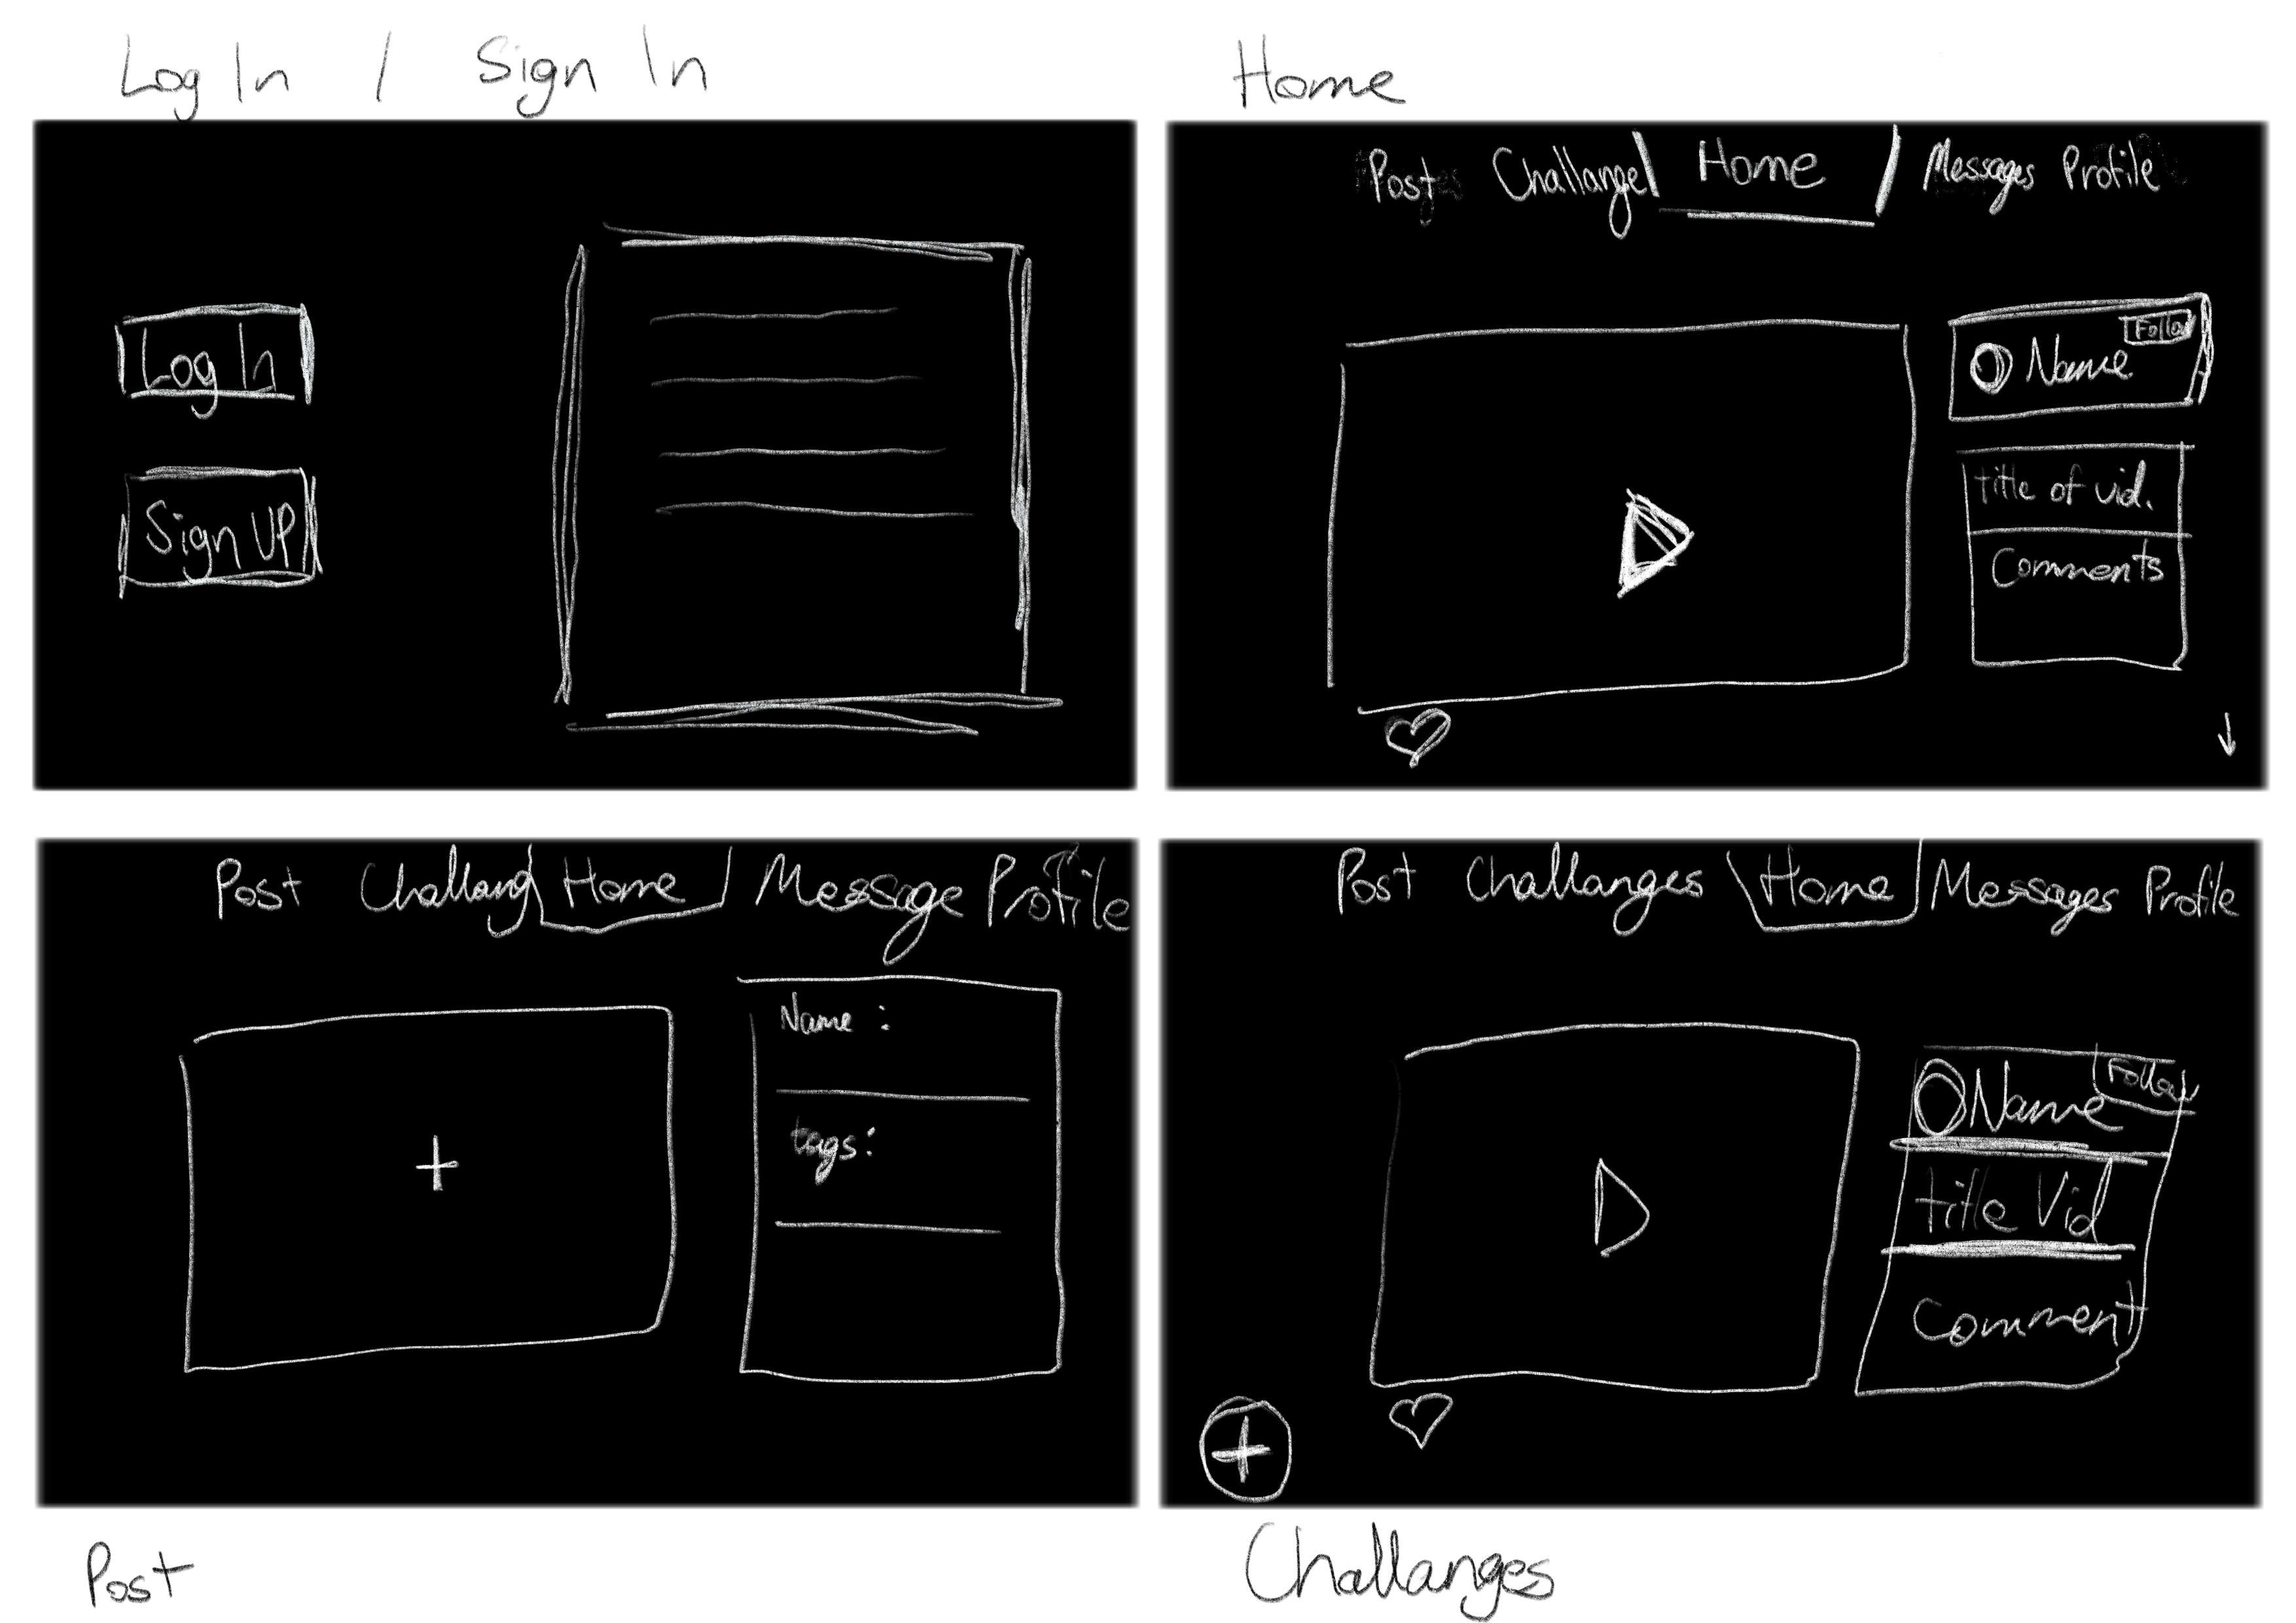 Log In / Sign In
Log In
Sign UP
Home
Post Challange Home Messages Profile
Follow
Name
title of vid.
Comments
Post Challang Home Message Profile
Name :
tags:
Post
Post Challanges Home Messages Profile
Follow
Name
title Vid
Comment
Challanges